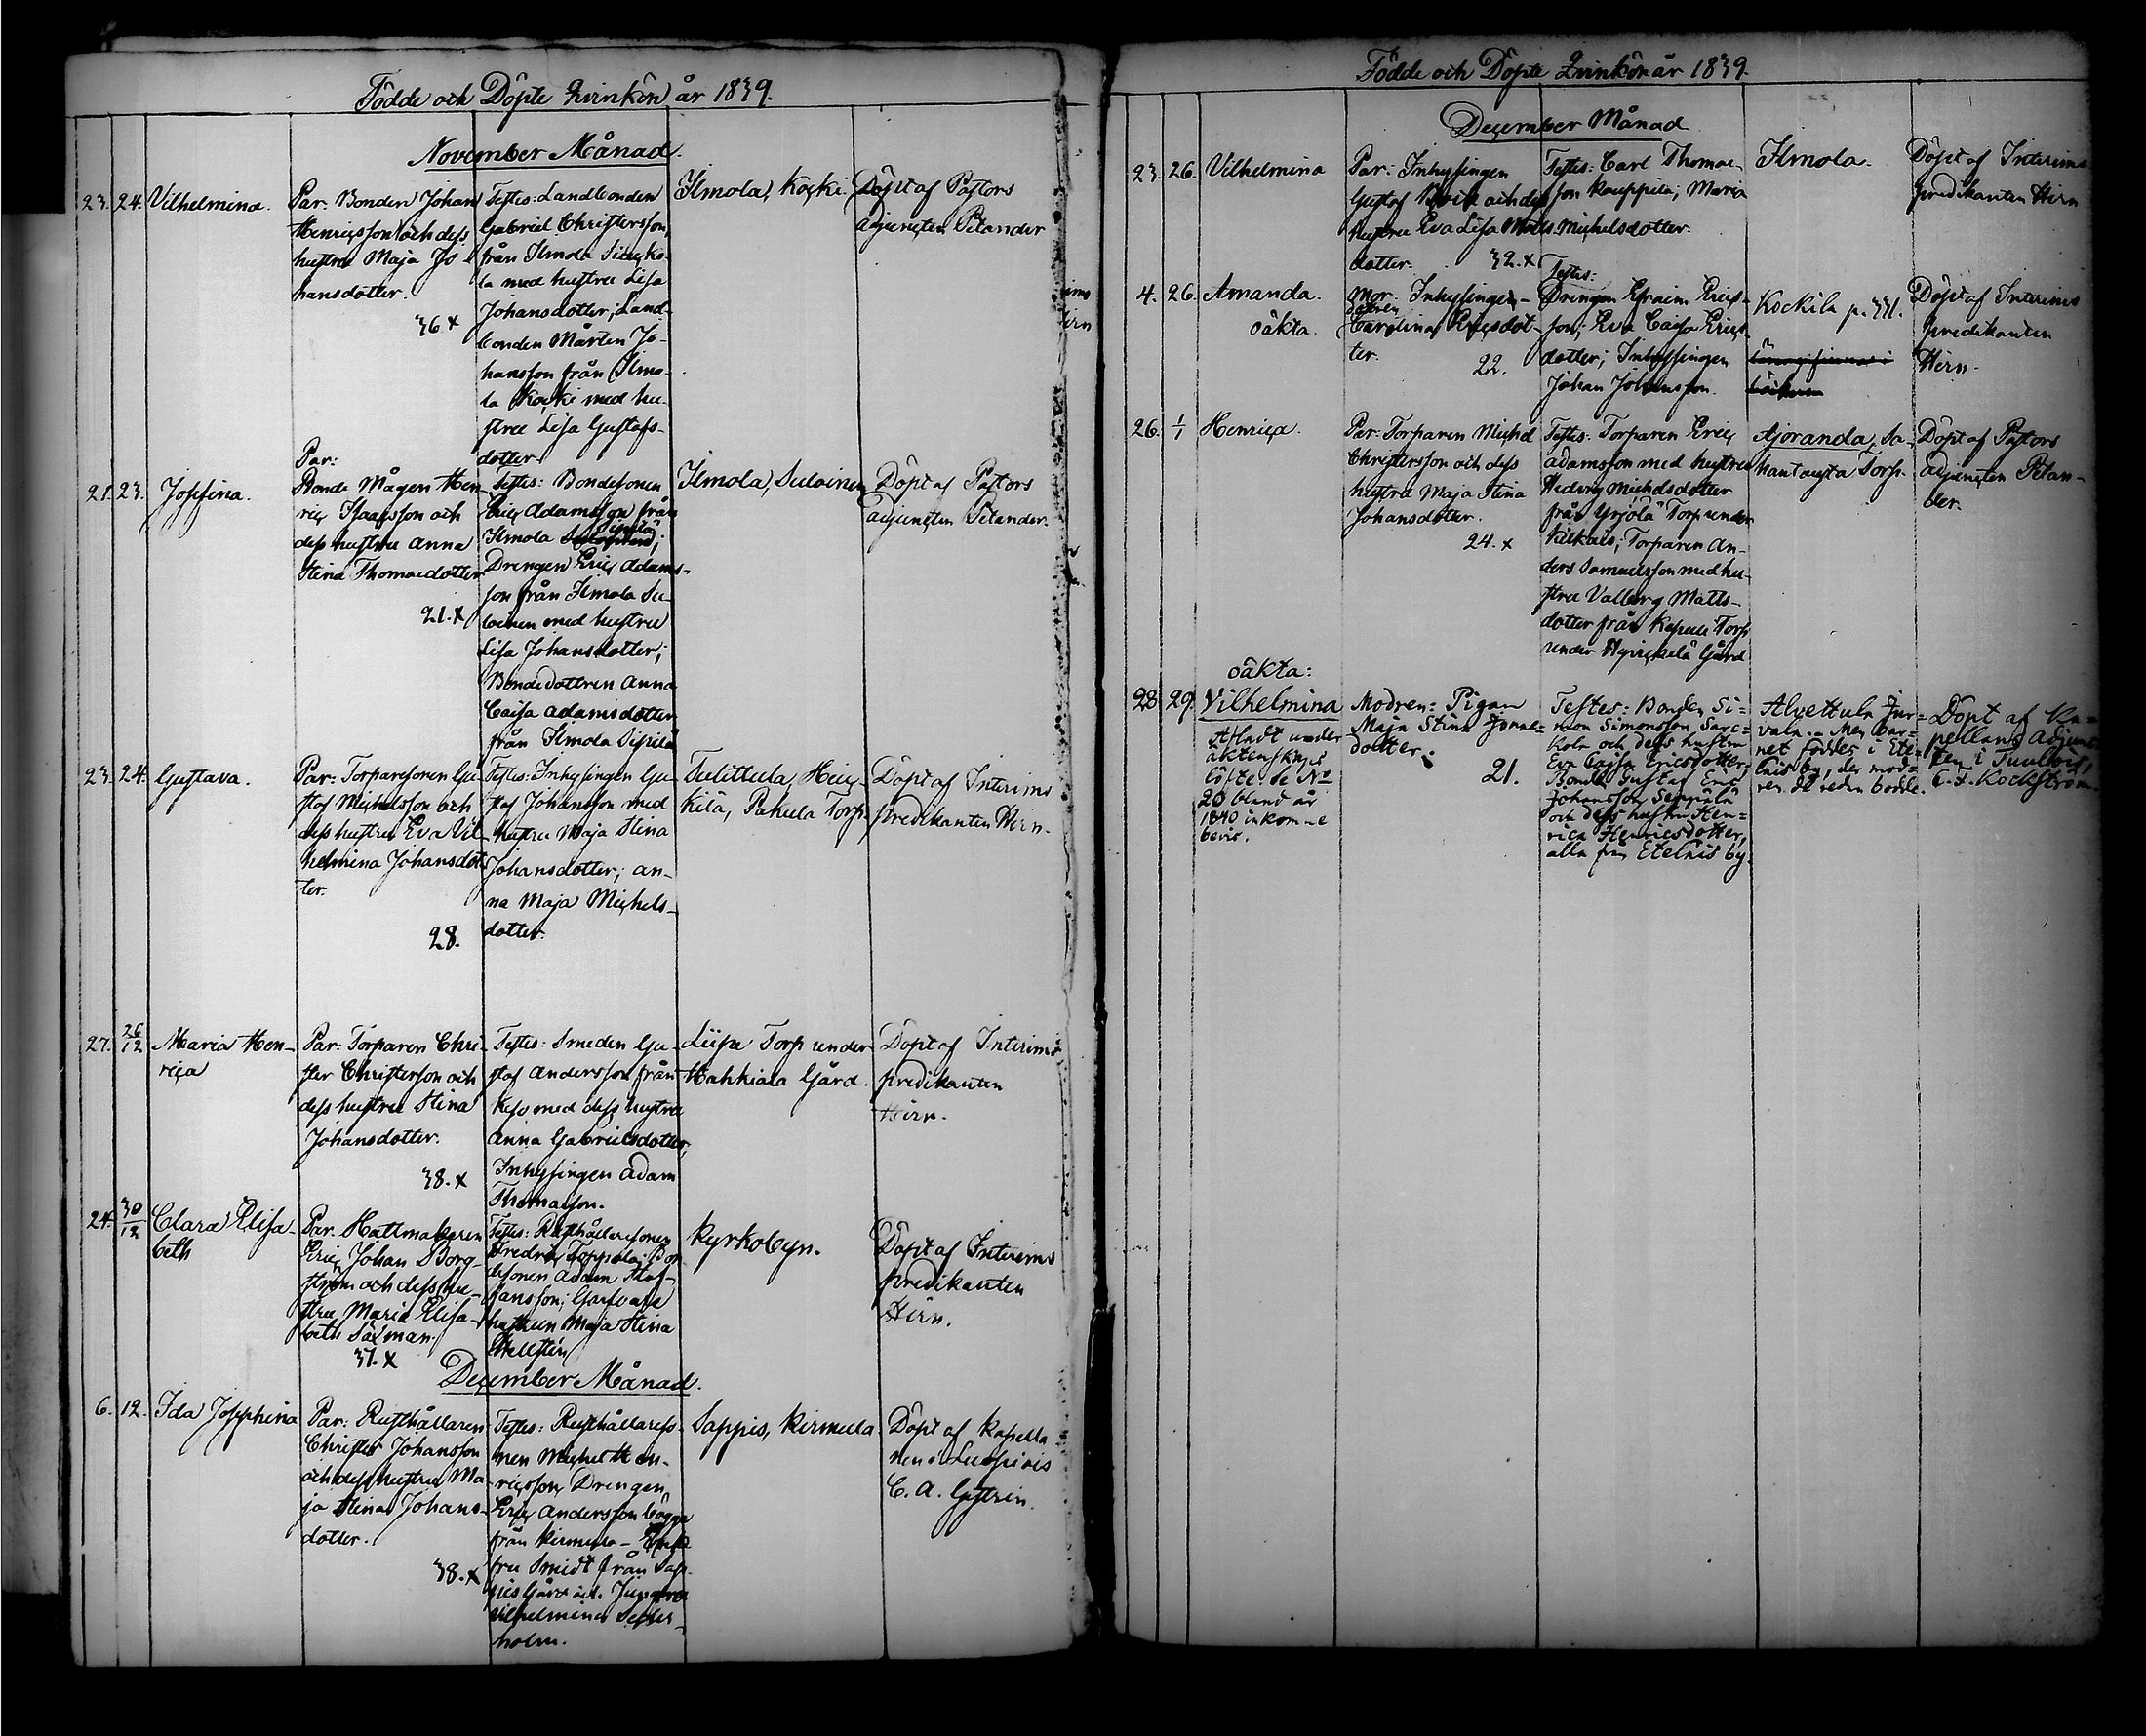 Födde och Döpte Qvinkön år 1839.
November Månad.
23. 24. Vilhelmina.
Par: Bonden Johan
Henricsson och dess
hustru Maja Jo-
hansdotter.
36 x
Testes: Landbonden
Gabriel Christersson
från Ilmola
la med hustru Lisa
Johansdotter; Land-
bonden Mårten Jo-
hansson från Ilmo-
la Koski med hu-
stru Lisa Gustafs-
dotter.
Ilmola, Koski.
Döpt af Pastors
adjuncten Petander
21. 23. Josefina.
Par:
Bonde Mågen Hen-
ric Isaacsson och
dess hustru Anna
Stina Thomaedotter
21. x
Testes: Bondesonen
Eric Adamsson från
Ilmola Sipilä;
Drengen Eric Adams-
son från Ilmola Su-
loinen med hustru
Lisa Johansdotter;
Bondedottren Anna
Caisa Adamsdotter
från Ilmola Sipilä
Ilmola, Suloinen
Döpt af Pastors
adjuncten Petander.
23. 24. Gustava.
Par: Torparesonen Gu-
staf Michelsson och
dess hustru Eva Vil-
helmina Johansdot-
ter.
28.
Testes: Inhysingen Gu-
staf Johansson med
hustru Maja Stina
Johansdotter; An-
na Maja Michels-
dotter.
Tulittula, Heic-
kilä, Pakula Torp.
Döpt af Interims
predikanten Hirn.
27. 26/12 Maria Hen-
rica
Par: Torparen Chri-
ster Christersson och
dess hustru Stina
Johansdotter.
38. x
Testes: Smeden Gu-
staf Andersson från
med dess hustru
Anna Gabrielsdotter,
Inhysingen Adam
Thomasson.
Liipa Torp under
Hahkiala Gård.
Döpt af Interims
predikanten
Hirn.
24. 30/12 Clara Elisa-
beth
Par: Hattmakaren
Eric Johan Borg-
ström och dess hu-
stru Maria Elisa-
beth
37. x
Testes: Rusthållaresonen
Fredric Toppola; Bon-
desonen Adam Staf-
fansson; Garfvare
hustrun Maja Stina
Hellstén
Kyrkobyn.
Döpt af Interims
predikanten
Hirn.
December Månad.
6. 12. Ida Josephina
Par: Rusthållaren
Christer Johansson
och dess hustru Ma-
ja Stina Johans-
dotter.
38. x
Testes: Rusthållareso-
nen Michel Hen-
ricsson, Drengen
Eric Andersson bägge
från Kirmula -
fru Smidt från Sap-
pis Gård och Jungfru
Vilhelmina
holm.
Sappis, Kirmula
Döpt af Kapella
nen i Luopiois
C. A. Gestrin.
Födde och Döpte Qvinkön år 1839.
December Månad
23. 26. Vilhelmina
Par: Inhysingen
Gustaf och dess
hustru Eva Lisa Matts-
dotter. 32. x
Testes: Carl Thomae-
son Kauppila; Maria
Michelsdotter.
Ilmola.
Döpt af Interims
predikanten Hirn
4. 26. Amanda.
oäkta.
Mor: Inhysinge-
dottren
Carolina Ericsdot-
ter. 22.
Testes:
Drengen Efraim Erics-
son; Eva Caisa Erics-
dotter; Inhysingen
Johan Johansson.
Kockila p. 331.
Döpt af Interims
predikanten
Hirn.
26. 1/1 Henrica.
Par: Torparen Michel
Christersson och dess
hustru Maja Stina
Johansdotter.
24. x
Testes: Torparen Eric
Adamsson med hustru
Hedvig Michelsdotter
från Yrjölä Torp under
Vilkais; Torparen An-
ders Samuelsson med hu-
stru Valborg Matts-
dotter från Torp
under Gård
Ajoranda, Sa-
hantausta Torp.
Döpt af Pastors
adjuncten Petan-
der.
28 29. oäkta:
Vilhelmina
Afladt under
äktenskaps
löfte. se No
20 bland år
1840 inkomne
bevis.
Modren: Pigan
Maja Stina
dotter.
21.
Testes: Bonden Si=
mon Simonsson Sarc=
kola och dess hustru
Eva Caisa Ericsdotter,
Bonde Gustaf Eric
Johansson Seppälä
och dess hustru Hen=
rica Henricsdotter,
alla från Etelais by.
Alvettula Jur=
vala. Men bar=
net föddes i Ete=
lais by, der mod=
ren då redan bodde.
Döpt af Ka=
pellans Adjunc=
ten i Tuulois,
C. F. Kockström.